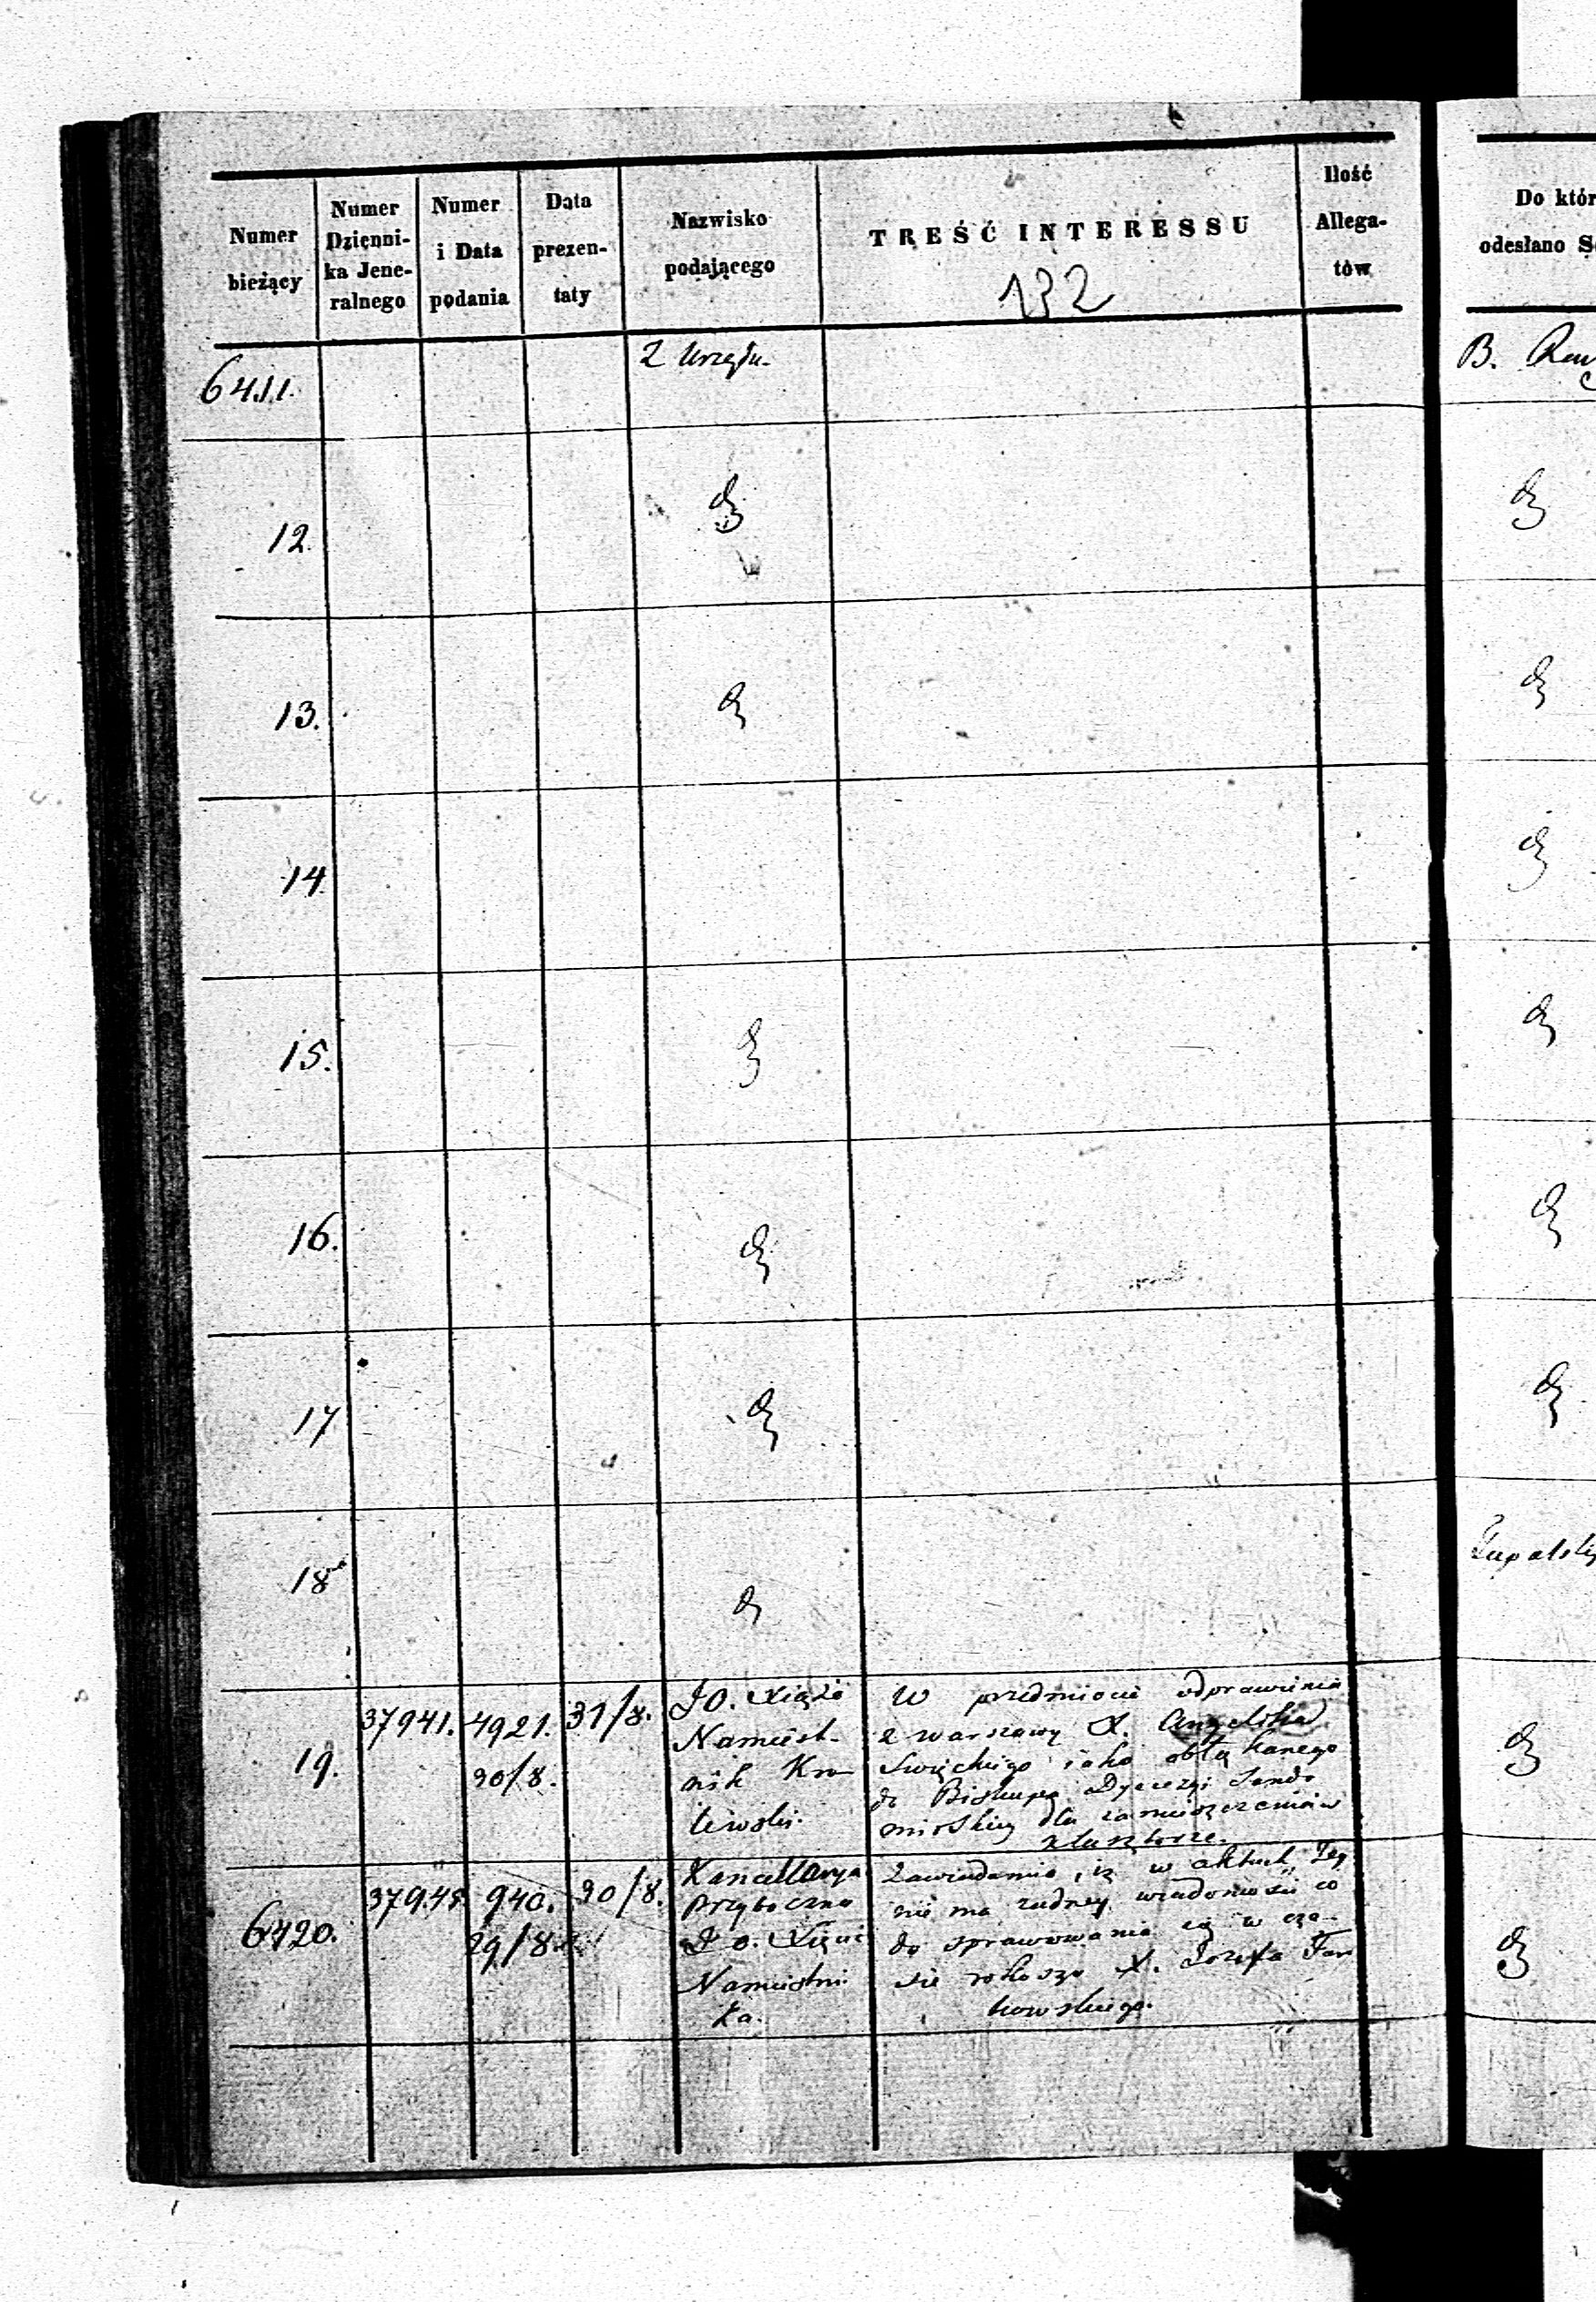 Numer bieżący
Numer Dzienni-ka Jene-ralnego
Numer i Data podania
Data prezen-taty
Nazwisko podającego
TREŚĆ INTERESSU
Ilość Allega-tów
Do któr
odesłano S
132
6411.
Z Urzędu.
B.
12.
13.
14
15.
16.
17
18
19.
37941.
4921.
30/8.
31/8.
JO. Xiąże
Namiest-
nik Kró
lewski.
W przedmiocie odprawienia
z Warszawy X.
Święckiego jako obłąkanego
do Biskupa Dyecezyi Sando
mirskiey dla zamieszczenia w
klasztorze.
6420.
37945.
940.
29/8
30/8.
Kancellarya
przyboczna
J. O. Xięcia
Namiestni
ka.
Zawiadamia, iż w aktach Jey
nie ma żadney wiadomości co
do sprawowania się w cza-
sie rokoszu X. Józefa
kowskiego.